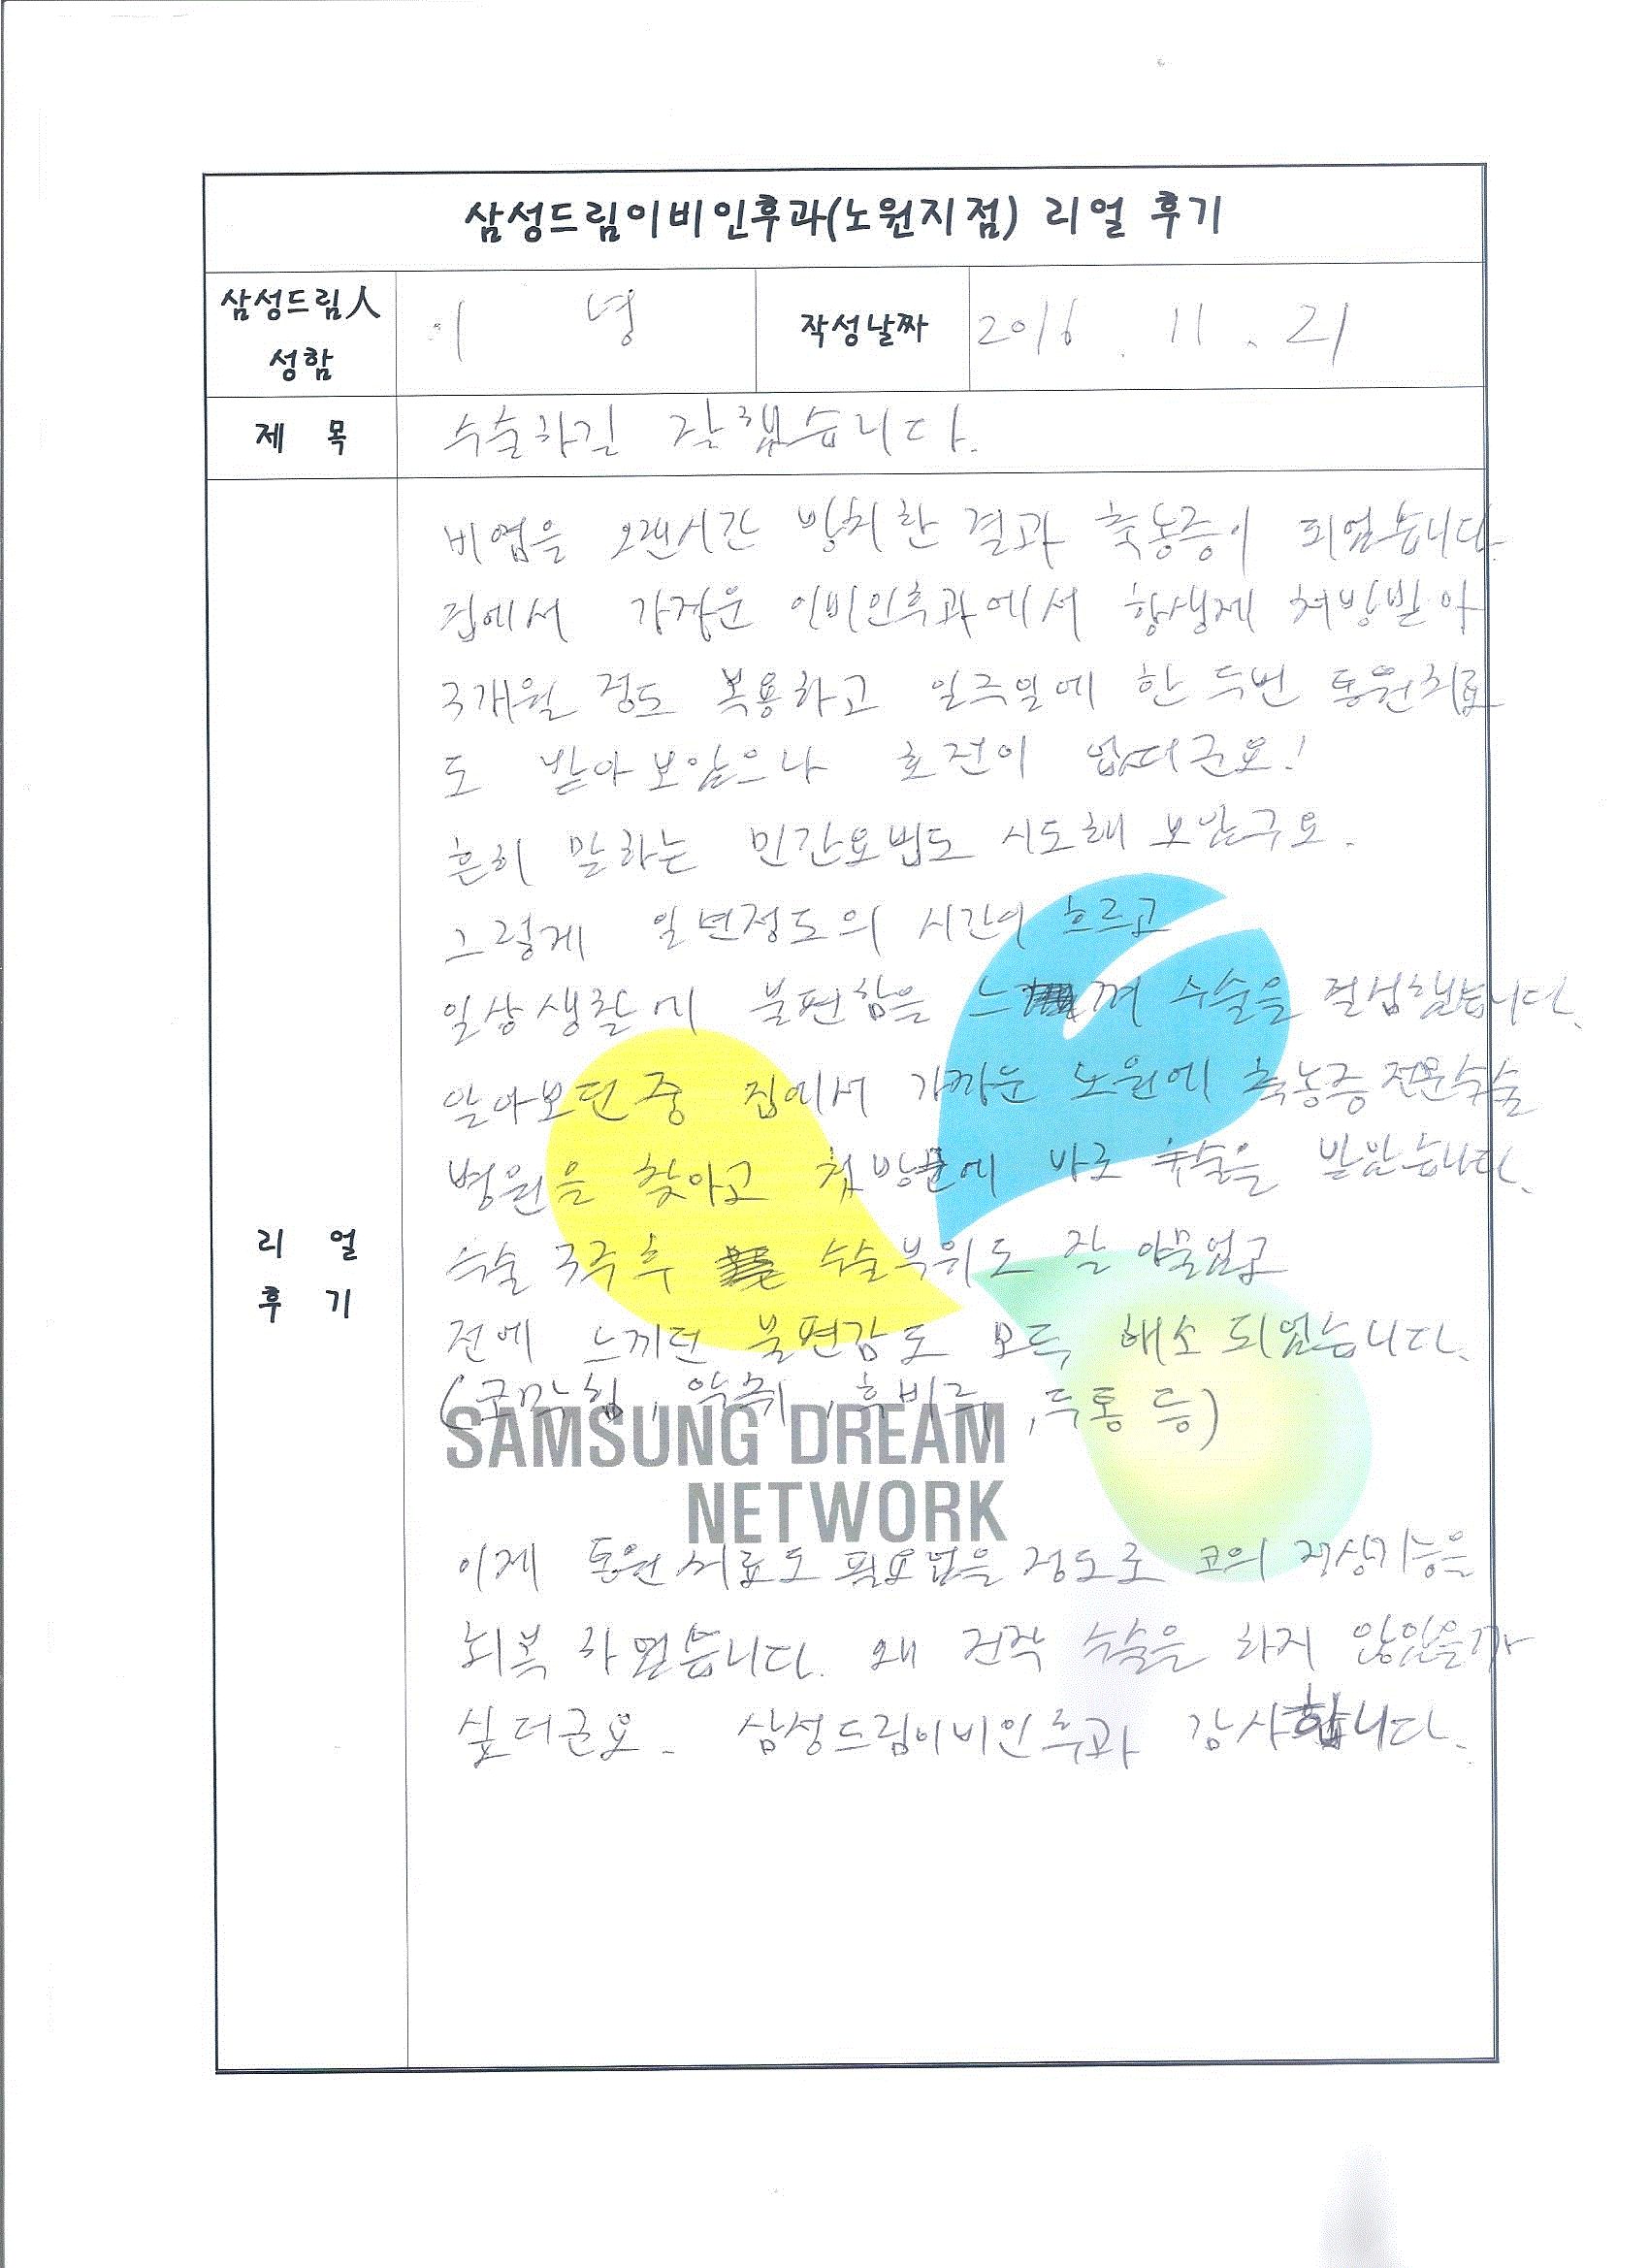 삼성드림이비인후과(노원지점) 리얼 후기
삼성드림人
성함
이 녕
작성날짜
2016. 11. 21
제 목
수술하길 잘했습니다.
비염을 오랜시간 방치한 결과 축농증이 되었습니다.
집에서 가까운 이비인후과에서 항생제 처방받아
3개월 정도 복용하고 일주일에 한 두번 통원치료
도 받아보았으나 호전이 없더군요!
흔히 말하는 민간요법도 시도해 보았구요.
그렇게 일년정도의 시간이 흐르고
일상생활에 불편함을 느껴 수술을 결심했습니다.
알아보던 중 집에서 가까운 노원에 축농증전문수술
병원을 찾아고 첫방문에 바로 수술을 받았습니다.
수술 3주 후 수술부위도 잘 아물었고
전에 느끼던 불편감도 모두 해소되었습니다.
(코막힘, 악취, 후비루, 두통 등)
SAMSUNG DREAM
NETWORK
리 얼
후 기
이제 통원치료도 필요없을 정도로 코의 정상기능을
회복 하였습니다. 왜 진작 수술을 하지 않았을까
싶더군요. 삼성드림이비인후과 감사합니다.